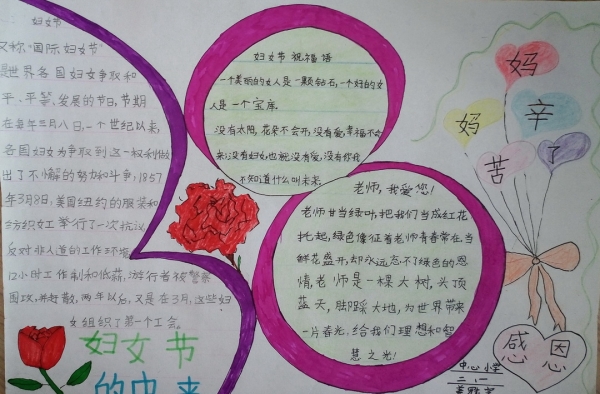 妇女节
又称"国际妇女节"
是世界各国妇女争取和
平、平等、发展的节日,节期
在每年三月八日,一个世纪以来,
各国妇女为争取到这一权利做
出了不懈的努力和斗争,1857
年3月8日,美国纽约的服装和
纺织女工举行了一次抗议,
反对非人道的工作环境
12小时工作制和低薪,游行者被警察
围攻,并赶散,两年以后,又是在3月,这些妇
女组织了第一个工会。
妇女节
的由来
妇女节祝福语
一个美丽的女人是一颗钻石,一个好的女
人是一个宝库
没有太阳,花朵不会开,没有爱,幸福不会
来,没有妇女,也就没有爱,没有你我
不知道什么叫未来。
老师,我爱您!
老师甘当绿叶,把我们当成红花
托起,绿色像征着老师青春常在,当
鲜花盛开,却永远忘不了绿色的恩
情,老师是一棵大树,头顶
蓝天,脚踩大地,为世界带来
一片春光,给我们理想和智
慧之光!
妈
妈
辛
苦
了
感恩
中心小学
二、一